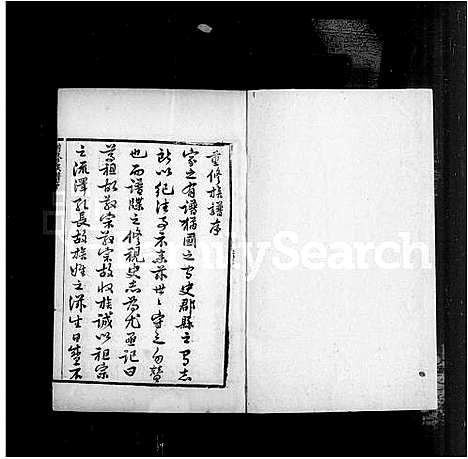 重修族譜序
家之有譜猶國之有史郡縣之有志
所以紀往事示來茲世々守之勿替
也而譜牒之修視史志為尤亟記曰
尊祖故敬宗敬宗故收族誠以祖宗
之流澤孔長故族姓之沐生日蕃不
FamilySearch